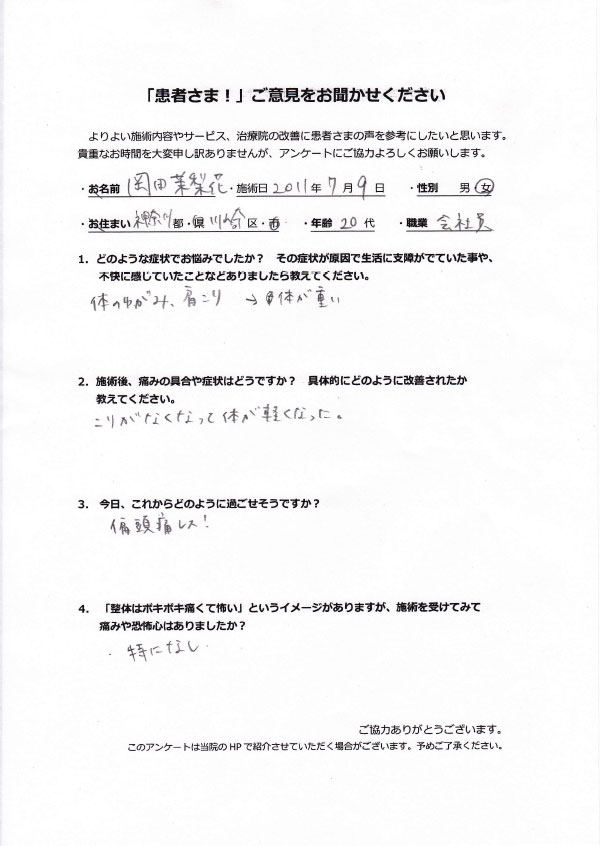 「患者さま！」ご意見をお聞かせください
よりよい施術内容やサービス、治療院の改善に患者さまの声を参考にしたいと思います。
貴重なお時間を大変申し訳ありませんが、アンケートにご協力よろしくお願いします。
・お名前 岡田茉梨花・施術日 2011年 7月 9日 ・性別 男 女
・お住まい 神奈川 都・県 川崎 区・市 ・年齢 20代 ・職業 会社員
1. どのような症状でお悩みでしたか？ その症状が原因で生活に支障がでていた事や、
不快に感じていたことなどありましたら教えてください。
体のゆがみ、肩こり → 体が重い
2. 施術後、痛みの具合や症状はどうですか？ 具体的にどのように改善されたか
教えてください。
こりがなくなって体が軽くなった。
3. 今日、これからどのように過ごせそうですか？
偏頭痛レス！
4. 「整体はボキボキ痛くて怖い」というイメージがありますが、施術を受けてみて
痛みや恐怖心はありましたか？
・特になし
ご協力ありがとうございます。
このアンケートは当院の HP で紹介させていただく場合がございます。予めご了承ください。